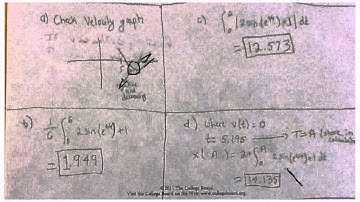 a) Check Velocity graph
c) ∫₀⁶ |2sin(e^(t/4))+1| dt
= 12.573
b) 1/6 ∫₀⁶ 2sin(e^(t/4))+1
= 1.949
d) where v(t)=0
t = 5.196 → T=A
x(A) = 2+∫₀^A 2sin(e^(t/4))+1 dt
= 14.135
© 2011 The College Board.
Visit the College Board on the Web: www.collegeboard.org.